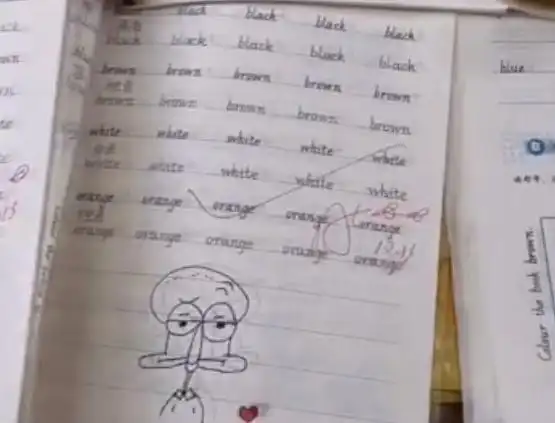 black black black black
black black black black black
brown brown brown brown brown
棕色
brown brown brown brown brown
white white white white white
白色
white white white white white
orange orange orange orange orange
orange orange orange orange orange
blue
Colour the book brown.